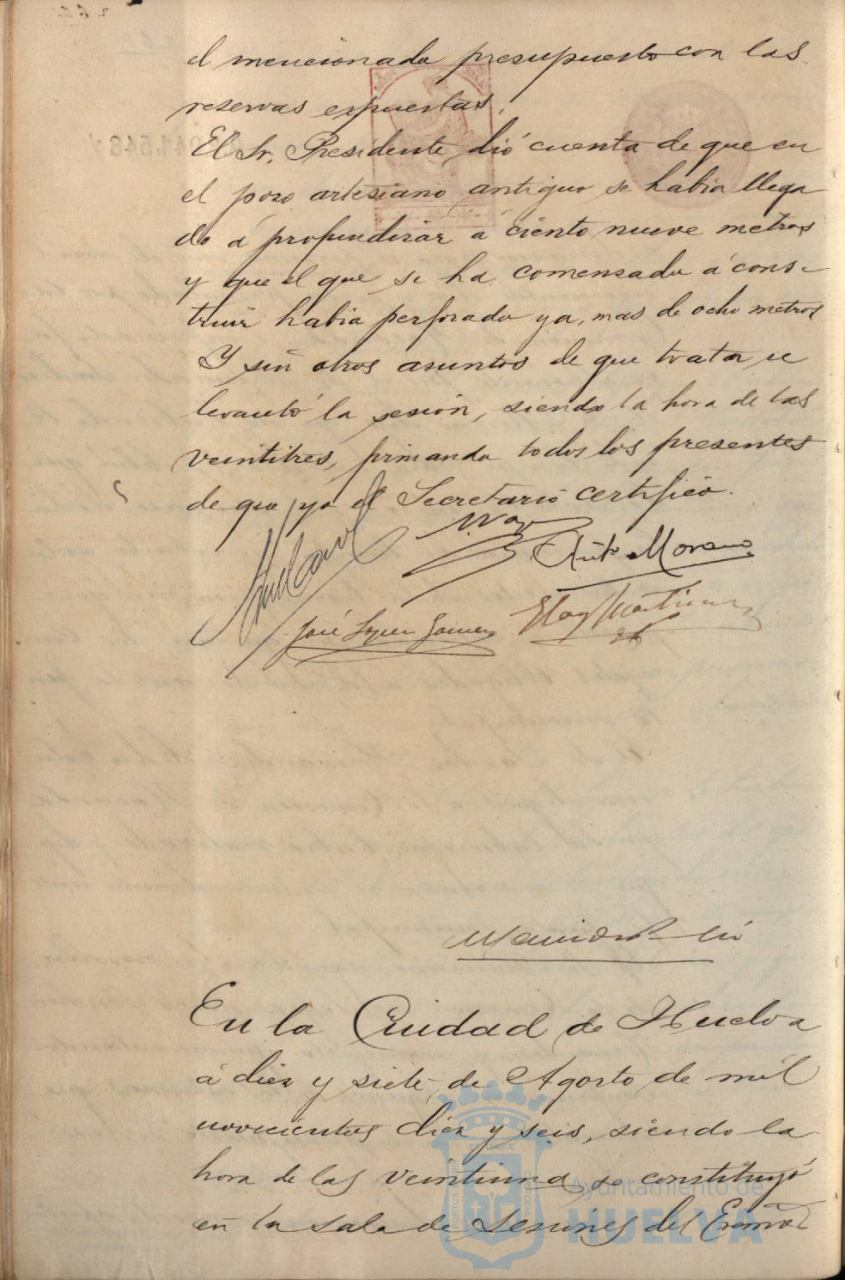 el mencionado presupuesto con las
reservas expuestas.
El Sr. Presidente, dió cuenta de que en
el pozo artesiano antiguo se habia llega
do á profundizar a ciento nueve metros
y que el que se ha comenzado á cons-
truir habia perforado ya, mas de ocho metros
Y sin otros asuntos de que tratar se
levantó la sesión, siendo la hora de las
veintitres, firmando todos los presentes
de que yo el Secretario certifico.
Anto Moreno
José López Gómez Eloy Martinez
En la Ciudad de Huelva
á diez y siete, de Agosto de mil
novecientos diez y seis, siendo la
hora de las veintiuna se constituyó
en la Sala de Sesiones del Excmo
Ayuntamiento de
HUELVA